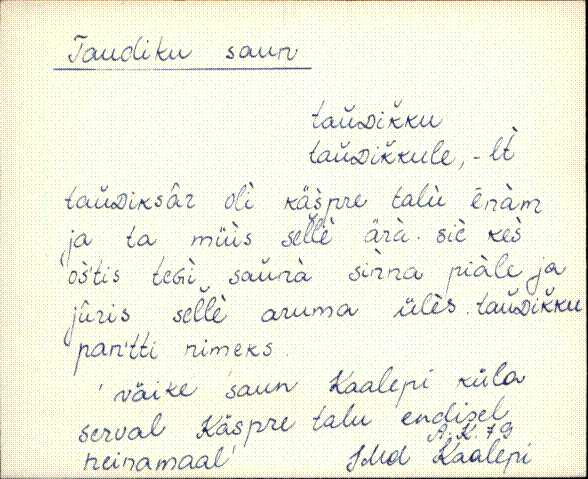 Taudiku saun
taŭᴅiǩku
taŭᴅiǩkule, -lt̀
taŭᴅiksâr olì käšpre talù ēnàm
ja ta müùs sellè ärà. siè kès
oštis tegì saŭnà sìnna piàle ja
jûris sellè aruma ülès. taŭᴅiǩku
pan'tti nimeks.
'väike saun Kaalepi küla
serval Käspre talu endisel
heinamaal'
A. K. 79
JMd Kaalepi